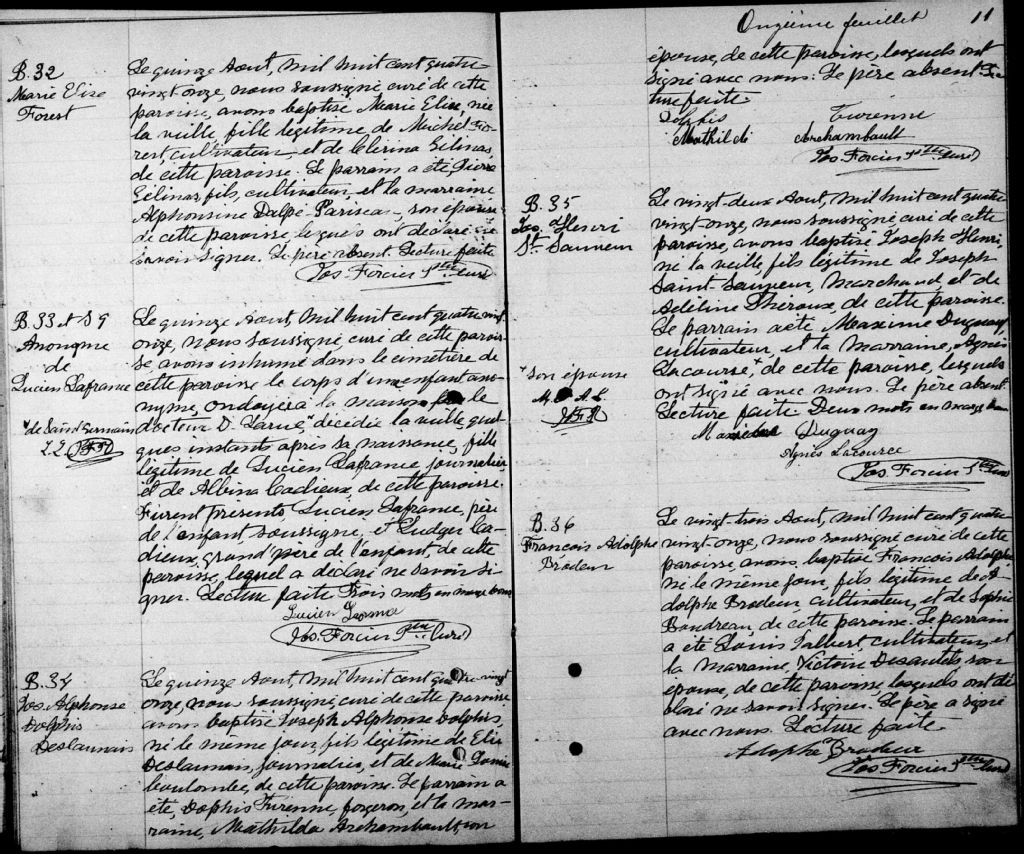 B. 32
Marie Elise
Forest
Le quinze Aout, mil huit cent quatre-
vingt onze, nous soussigné curé de cette
paroisse, avons baptisé Marie Elise, née
la veille, fille légitime de Michel Fo-
rest, cultivateur, et de Clerina Gélinas,
de cette paroisse. Le parrain a été Pierre
Gélinas fils, cultivateur, et la marraine
Alphonsine Dalpé-Pariseau, son épouse
de cette paroisse, lequels ont déclaré ne
savoir signer. Le père absent. Lecture faite
Jos. Forcier Ptre Curé
B. 33 et S 9
Anonyme
de
Lucien Lafrance
"de Saint Germain
L.L. J.F.
Le quinze Aout, mil huit cent quatre vingt
onze, nous soussigné, curé de cette parois-
se avons inhumé dans le cimetière de
cette paroisse le corps d'un enfant ano-
nyme, ondoyé à la maison par le
docteur D. Larue," décédé la veille quel-
ques instants après sa naissance, fille
légitime de Lucien Lafrance, journalier,
et de Albina Cadieux, de cette paroisse.
Furent présents Lucien Lafrance, père
de l'enfant soussigné, et Ludger Ca-
dieux, grand'père de l'enfant, de cette
paroisse, lequel a déclaré ne savoir si-
gner. Lecture faite Trois mots en marge bons
Lucien
Jos. Forcier Ptre Curé
B. 34
Jos. Alphonse
Dolphis
Deslaunais
Le quinze Aout, mil huit cent quatre vingt
onze, nous soussigné, curé de cette paroisse
avons baptisé Joseph Alphonse Dolphis,
né le même jour, fils légitime de Elie
Deslaunais, journalier, et de Marie Louise
Coulombe, de cette paroisse. Le parrain a
été, Dophis Turenne, forgeron, et la mar-
raine, Mathilda Archambault, son
Onzième feuillet 11
épouse, de cette paroisse, lesquels ont
signé avec nous. Le père absent. Lec-
ture faite.
Dolphis Turenne
Mathilde Archambault
Jos. Forcier Ptre Curé
B. 35
Jos. Henri
St. Sauveur
"son épouse
M. D A. L.
J F P
Le vingt-deux Aout, mil huit cent quatre
vingt-onze, nous soussigné curé de cette
paroisse, avons baptisé Joseph Henri,
né la veille, fils légitime de Joseph
Saint Sauveur, Marchand, et de
Adéline Théroux, de cette paroisse.
Le parrain a été Maxime Duguay,
cultivateur, et la marraine, Agnès
Lacourse," de cette paroisse, lesquels
ont signé avec nous. Le père absent
Lecture faite. Deux mots en marge bons
Maxime Duguay
Agnès Lacource
Jos. Forcier Ptre Curé
B. 36
Francois Adolphe
Brodeur
Le vingt-trois Aout, mil huit cent quatre
vingt-onze, nous soussigné curé de cette
paroisse, avons baptisé François Adolphe
né le même jour, fils légitime de A-
dolphe Brodeur, cultivateur, et de Sophie
Boudreau, de cette paroisse. Le parrain
a été Louis Jalbert, cultivateur, et
la marraine, Victoire Desautels, son
épouse, de cette paroisse, lesquels ont dé-
claré ne savoir signer. Le père a signé
avec nous. Lecture faite
Adolphe Brodeur
Jos. Forcier Ptre Curé